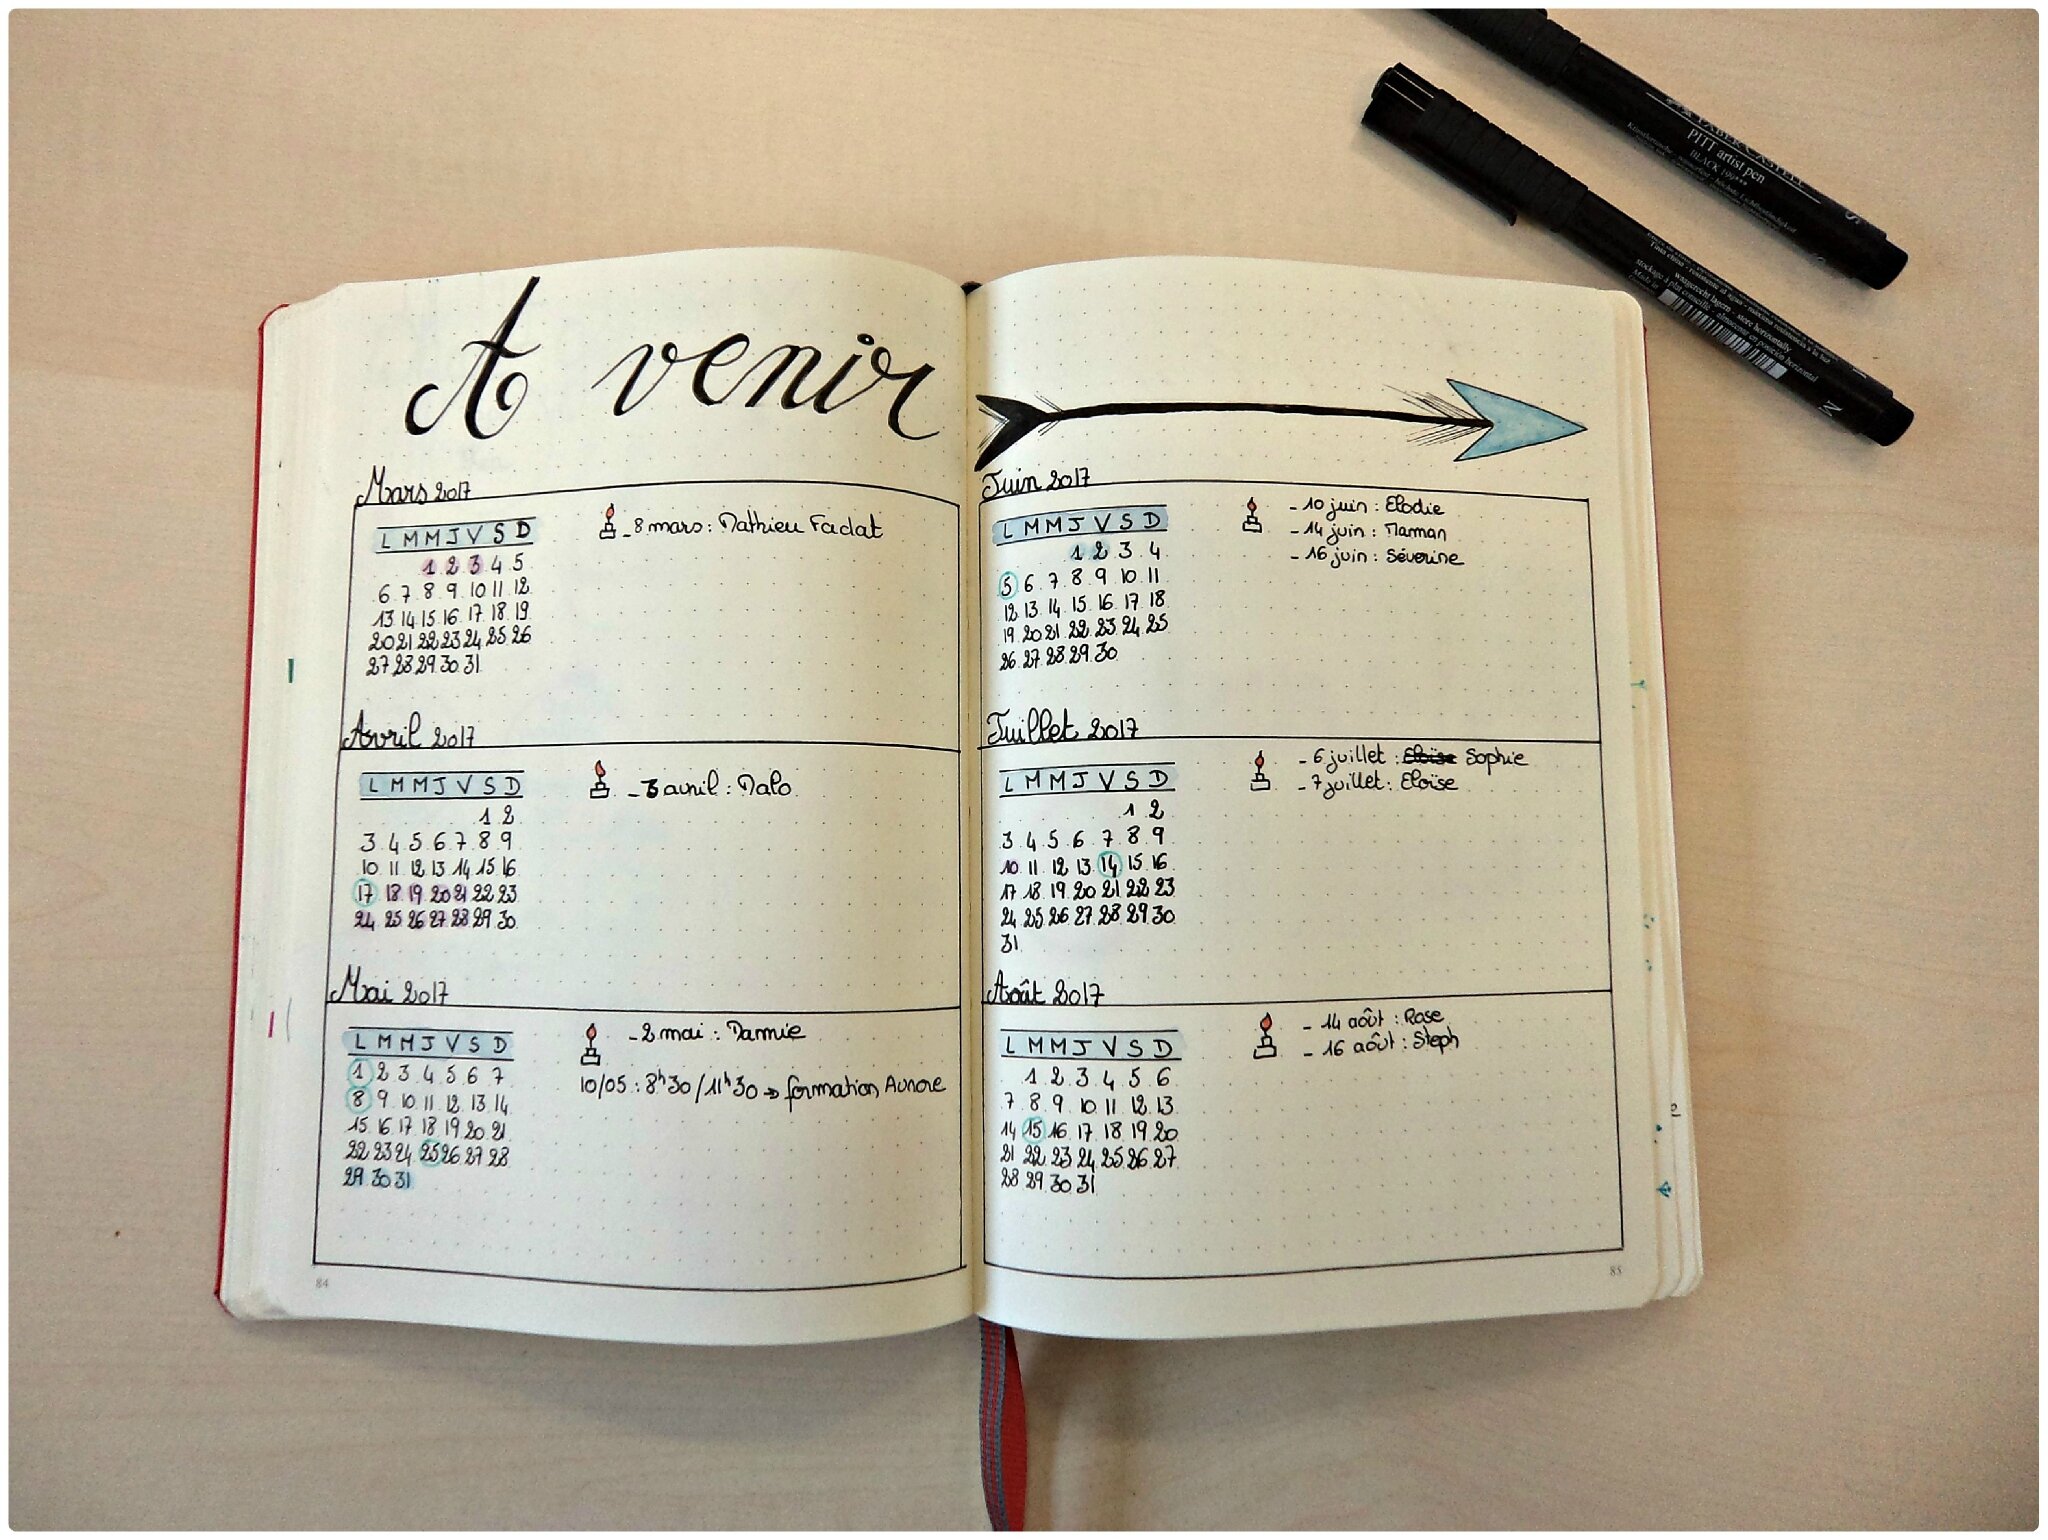 A venir
Mars 2017
L M M J V S D
1 2 3 4 5
6 7 8 9 10 11 12
13 14 15 16 17 18 19
20 21 22 23 24 25 26
27 28 29 30 31
- 8 mars : Mathieu Fadat
Avril 2017
L M M J V S D
1 2
3 4 5 6 7 8 9
10 11 12 13 14 15 16
17 18 19 20 21 22 23
24 25 26 27 28 29 30
- 3 avril : Malo
Mai 2017
L M M J V S D
1 2 3 4 5 6 7
8 9 10 11 12 13 14
15 16 17 18 19 20 21
22 23 24 25 26 27 28
29 30 31
- 2 mai : Mamie
10/05 : 8h30 / 11h30 → formation Aurore
84
Juin 2017
L M M J V S D
1 2 3 4
5 6 7 8 9 10 11
12 13 14 15 16 17 18
19 20 21 22 23 24 25
26 27 28 29 30
- 10 juin : Elodie
- 14 juin : Maman
- 16 juin : Séverine
Juillet 2017
L M M J V S D
1 2
3 4 5 6 7 8 9
10 11 12 13 14 15 16
17 18 19 20 21 22 23
24 25 26 27 28 29 30
31
- 6 juillet : Eloïse Sophie
- 7 juillet : Eloïse
Août 2017
L M M J V S D
1 2 3 4 5 6
7 8 9 10 11 12 13
14 15 16 17 18 19 20
21 22 23 24 25 26 27
28 29 30 31
- 14 août : Rose
- 16 août : Steph
85
FABER-CASTELL
PITT artist pen
BLACK 199***
S
waagerecht lagern - store horizontally
stockage à plat conseillé - almacenar en posición horizontal
Made in
M